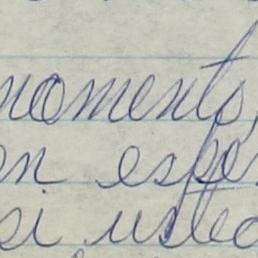 momento,
en espe
si usted